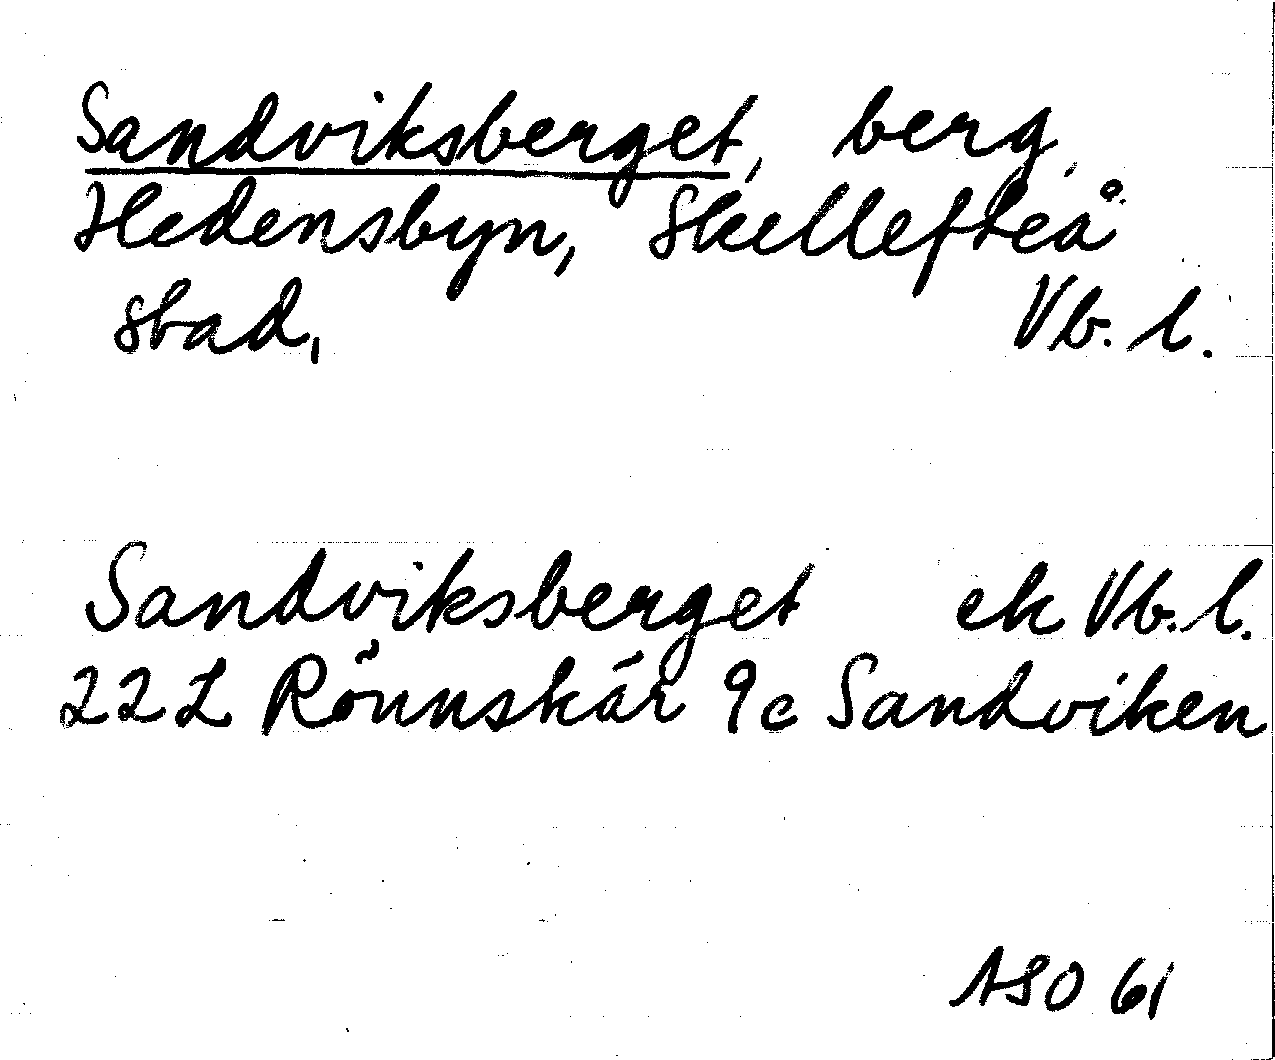 Sandviksberget, berg,
Hedensbyn, Skellefteå
stad, Vb. l.
Sandviksberget ek Vb. l.
22 L Rönnskär 9c Sandviken
ASO 61